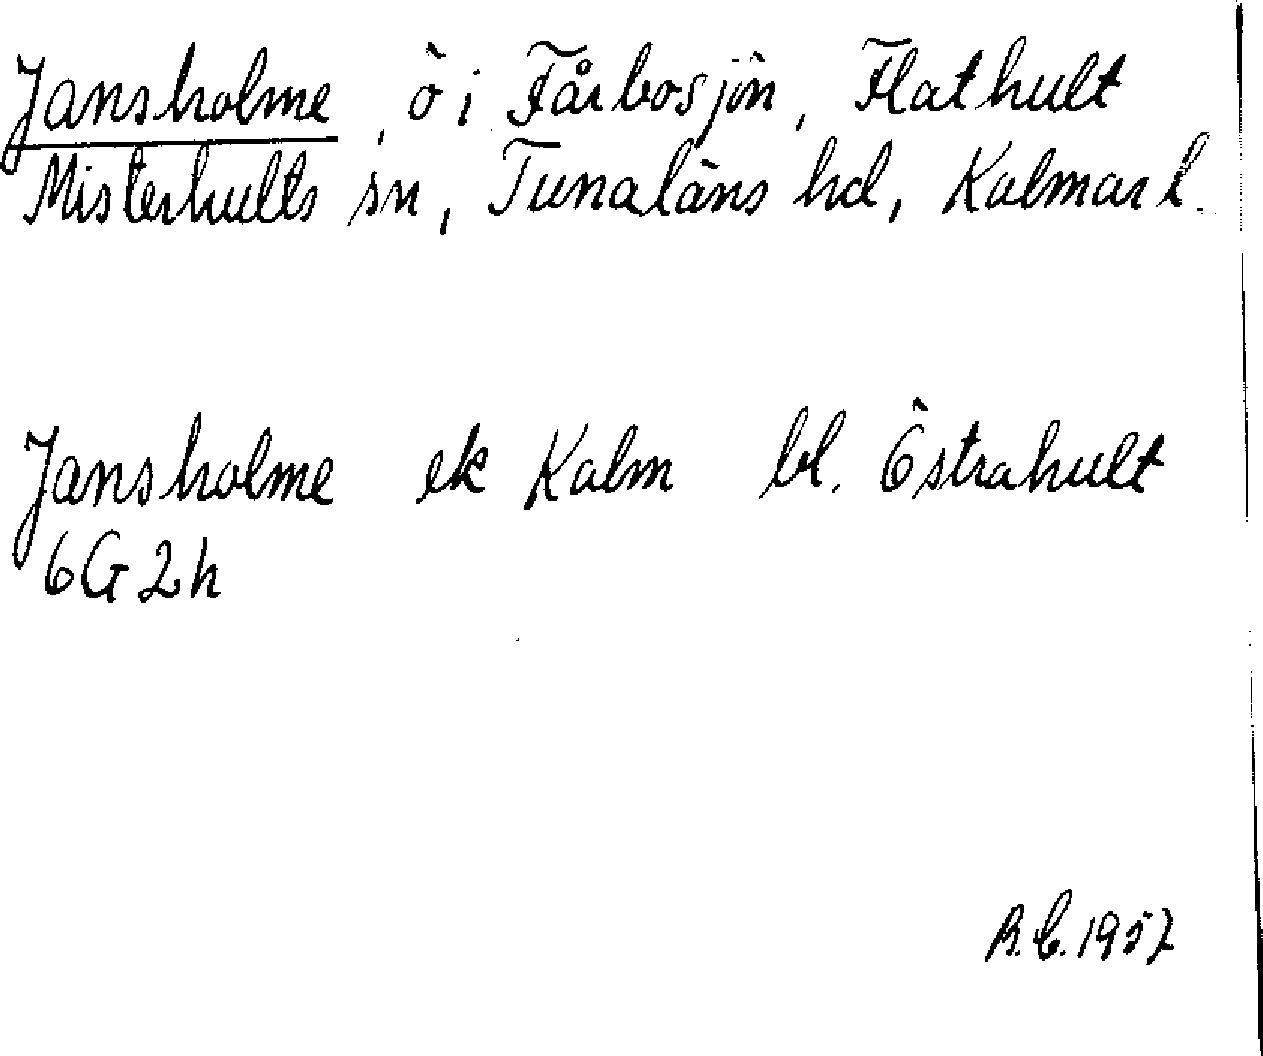 Jansholme, ö i Fårbosjön, Flathult
Misterhults sn, Tunaläns hd, Kalmar l.
Jansholme ek Kalm bl. Östrahult
6G2h
R.C. 1957